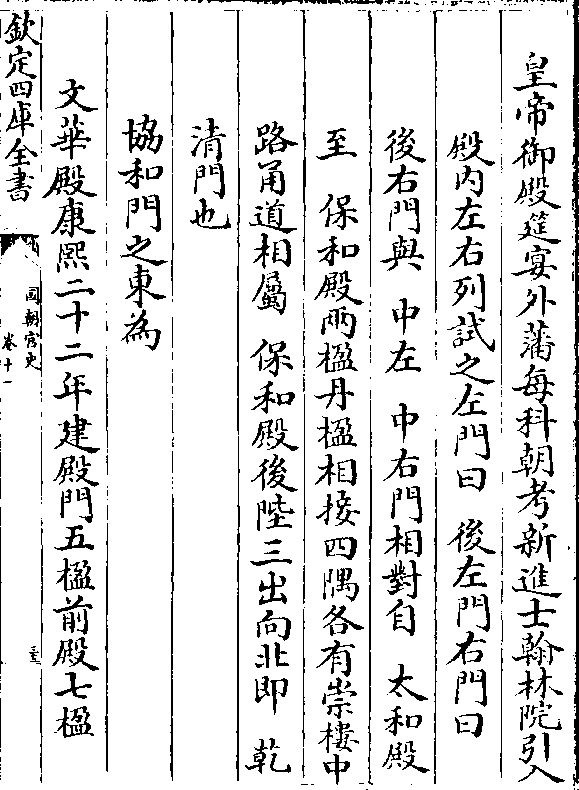 皇帝御殿筵宴外藩每科朝考新進士翰林院引入
殿內左右列試之左門曰　後左門右門曰
後右門與　中左　中右門相對自　太和殿
至　保和殿兩楹丹楹相接四隅各有崇樓中
路甬道相屬　保和殿後陛三出向北即　乾
清門也
協和門之東為
文華殿康熙二十二年建殿門五楹前殿七楹
欽定四庫全書
國朝宮史
卷十一